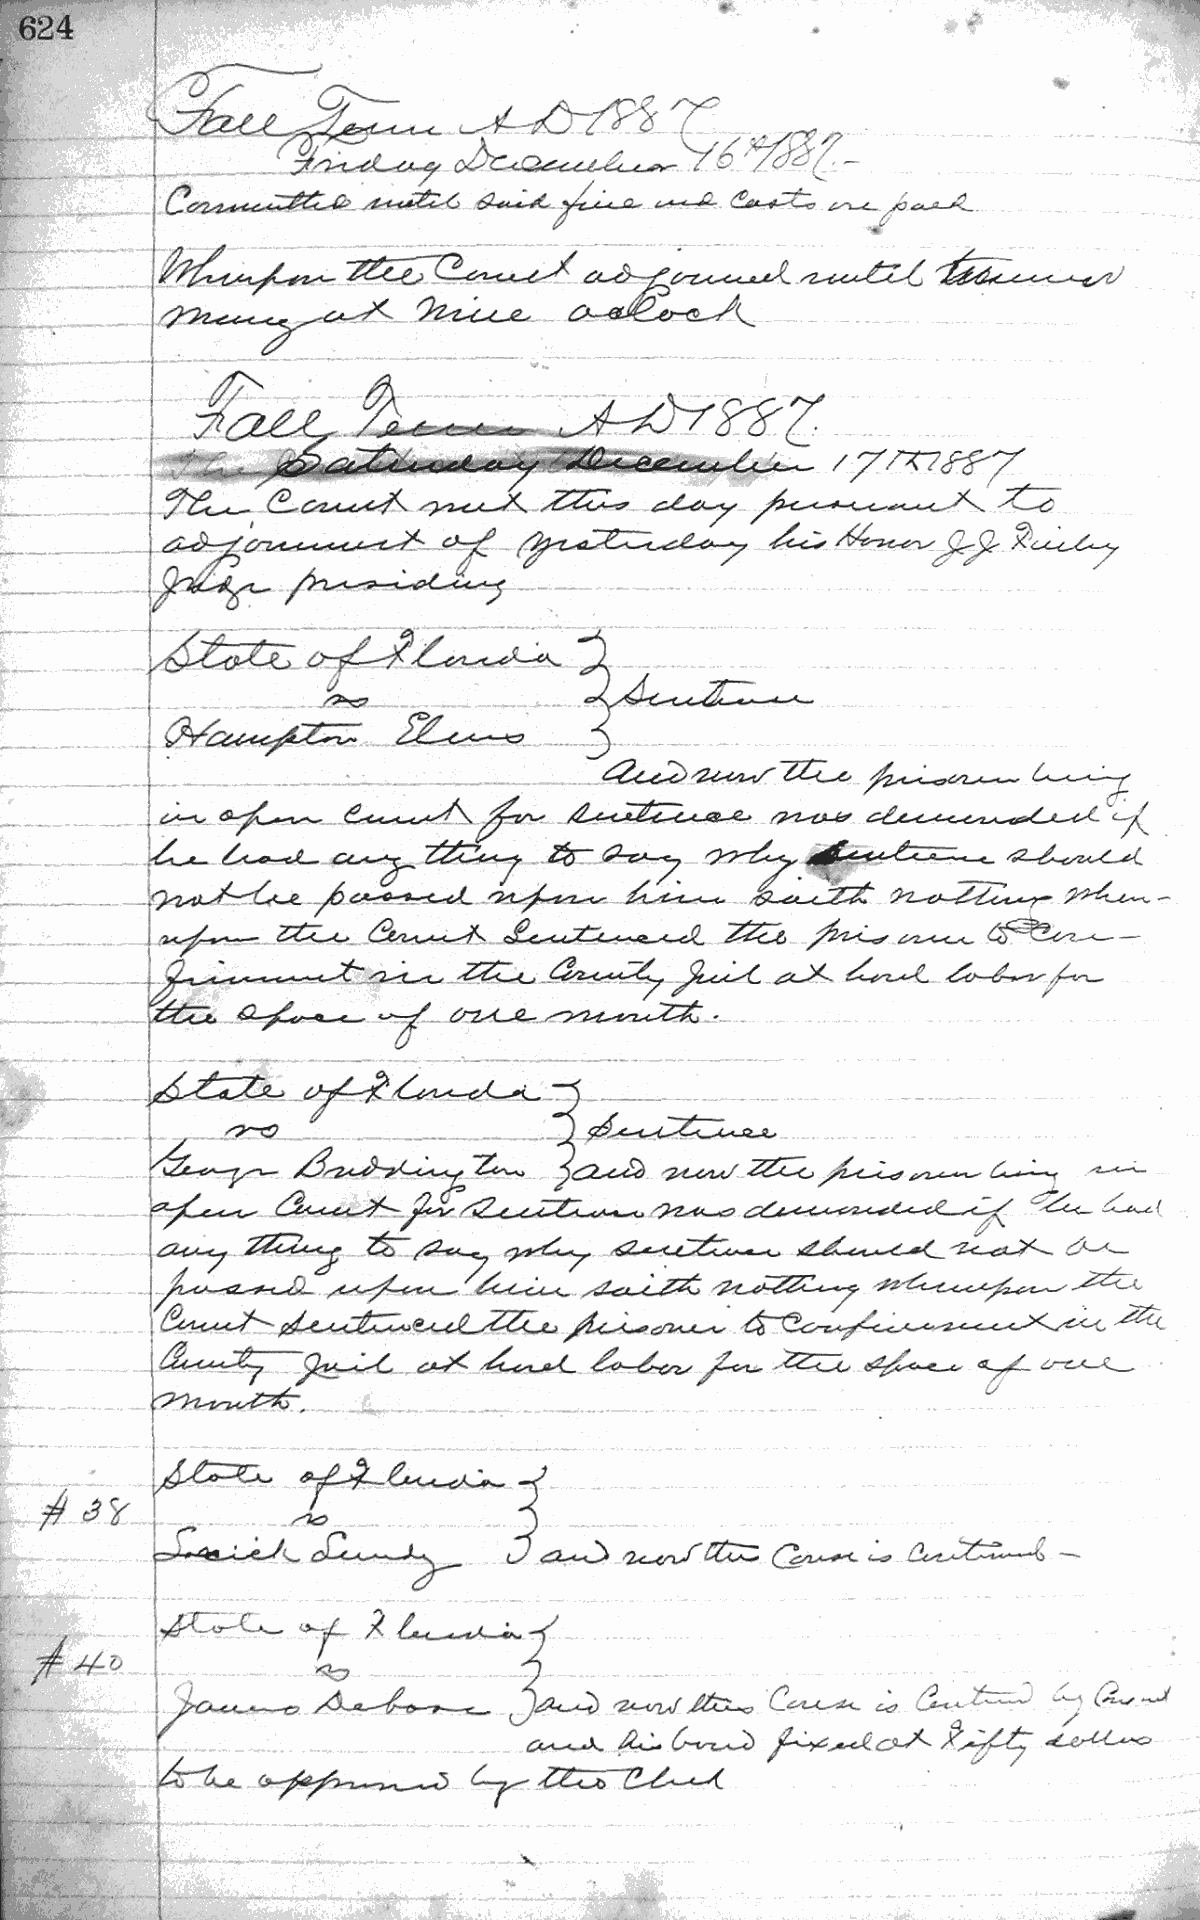 624
Fall Term A D 1887
Friday December 16th 1887.-
Committed until said fine and Costs are paid
Whereupon the Court adjourned until
morning at Nine oclock
Fall Term A D 1887.
The Saturday December 17th 1887
The Court met this day pursuant to
adjournment of yesterday his Honor J J Finley
Judge presiding
State of Florida
vs
Sentence
Hampton Elms
and now the prisoner being
in open Court for Sentence was demanded if
he had any thing to say why Sentence should
not be passed upon him saith nothing when-
upon the Court Sentenced the prisoner to Con-
finement in the County Jail at hard labor for
the space of one month.
State of Florida
vs
Sentence
George Buddington and now the prisoner being in
open Court for Sentence was demanded if he had
any thing to say why sentence should not be
passed upon him saith nothing whereupon the
Court Sentenced the prisoner to Confinement in the
County Jail at hard labor for the space of one
month.
State of Florida
# 38
vs
Lundy and now this Cause is Continued -
State of Florida
# 40
vs
James Debose and now this Cause is Continued by Consent
and his bond fixed at Fifty dollars
to be approved by the Clerk